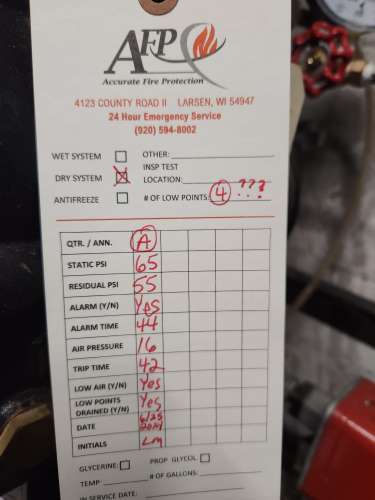 AFP
Accurate Fire Protection
4123 COUNTY ROAD II LARSEN, WI 54947
24 Hour Emergency Service
(920) 594-8002
WET SYSTEM OTHER:
INSP TEST
DRY SYSTEM X LOCATION:
ANTIFREEZE # OF LOW POINTS: 4 ???
QTR. / ANN. A
STATIC PSI 65
RESIDUAL PSI 55
ALARM (Y/N) Yes
ALARM TIME 44
AIR PRESSURE 16
TRIP TIME 42
LOW AIR (Y/N) Yes
LOW POINTS
DRAINED (Y/N) Yes
DATE 6/25
INITIALS LM
GLYCERINE: PROP GLYCOL:
TEMP # OF GALLONS:
IN SERVICE DATE: